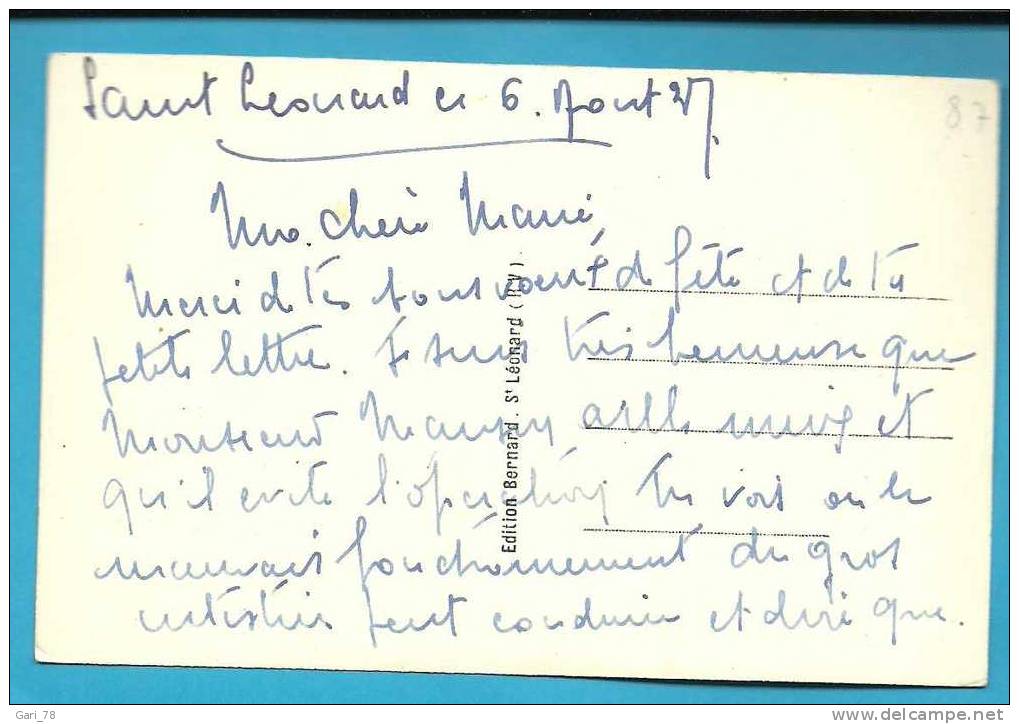 Saint Léonard ce 6. Aout 27
87
Ma chère Marie,
Merci de tes bons voeux de fête et de ta
petite lettre. Je suis très heureuse que
Monsieur aille mieux et
qu'il évite l'opération Tu vois ou le
mauvais fonctionnement du gros
intestin peut conduire et dire que.
Edition Bernard . St Léonard (H.V).
Gari_78
www.delcampe.net